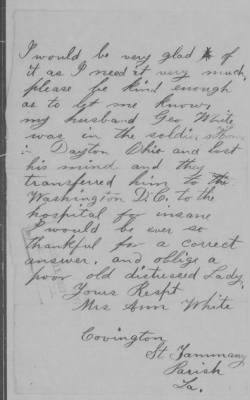 I would be very glad of
it as I need it very much,
please be kind enough
as to let me know,
my husband Geo White
was in the soldiers Home
in Dayton Ohio and lost
his mind and they
transferred him to the
Washington D.C. to the
hospital for insane
I would be ever so
thankful for a correct
answer, and oblige a
poor old distressed Lady,
Yours Respt
Mrs Ann White
Covington
St Tammany
Parish
La.